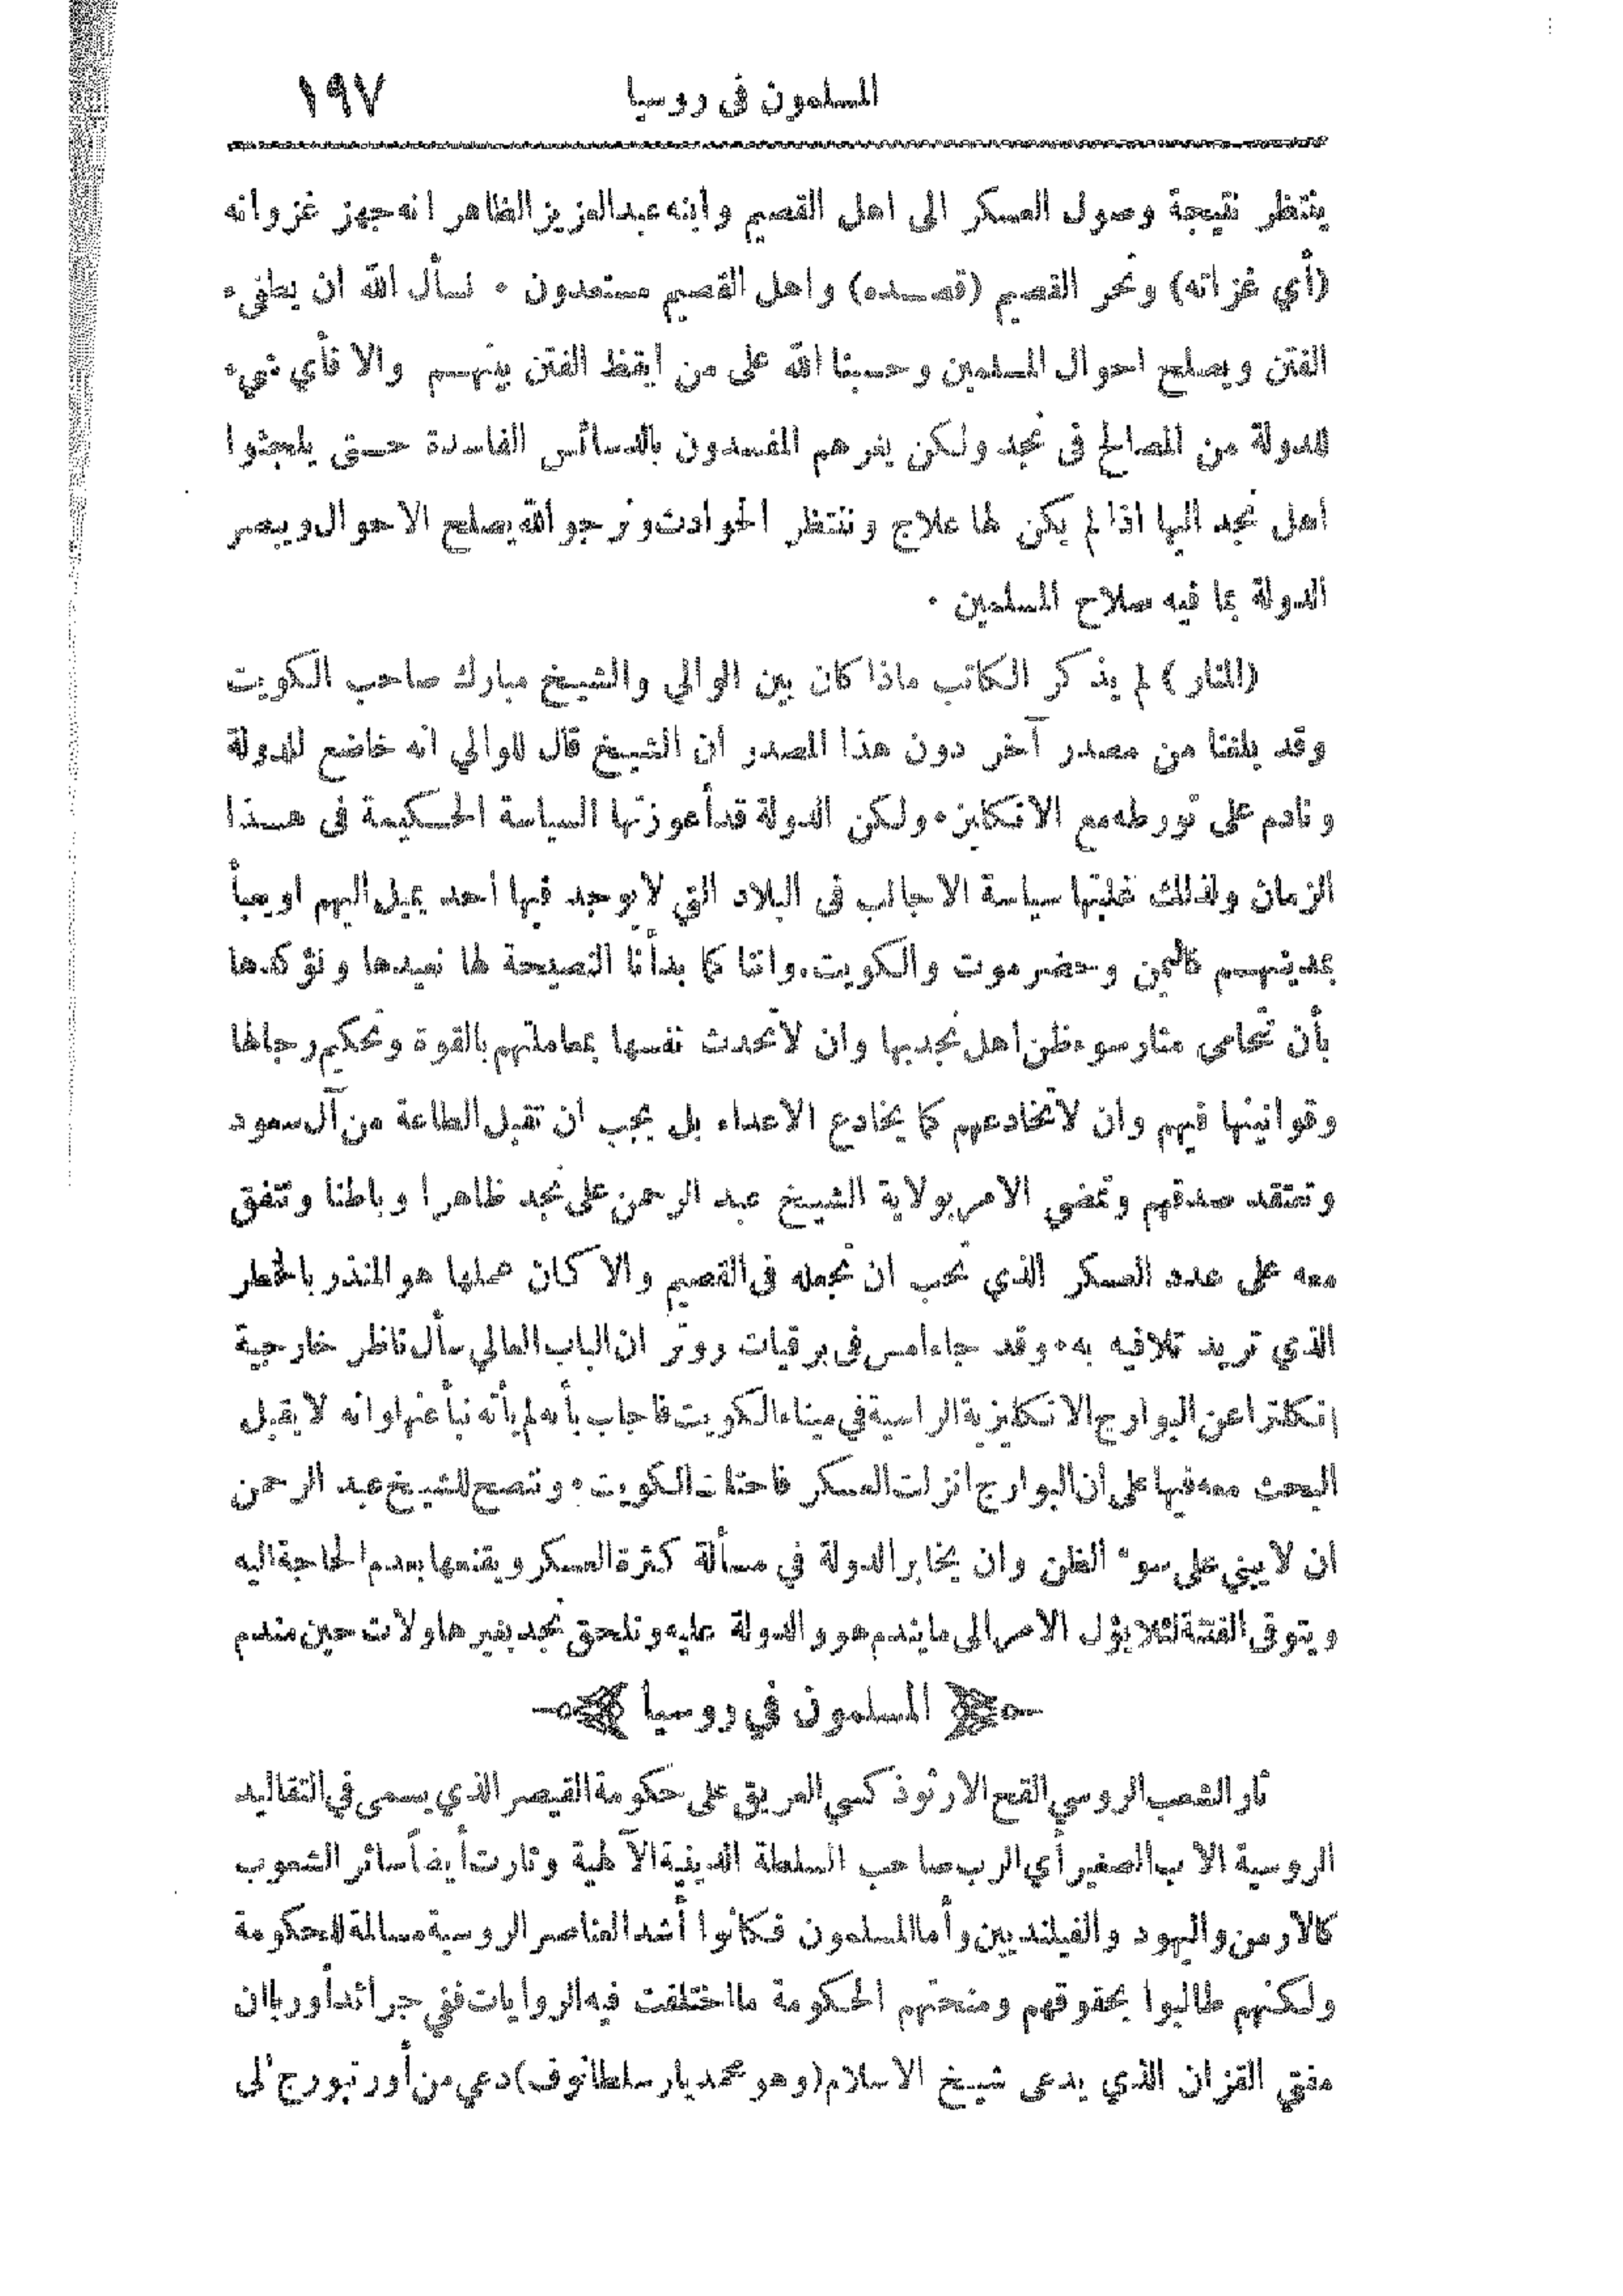 المسلمون فى روسيا ١٩٧
ينتظر نتيجة وصول العسكر الى اهل القصيم وابنه عبدالعزيز الظاهر انه جهز غزوانه
(أي غزاته) ونحر القصيم (قصده) واهل القصيم مستعدون . نسأل الله ان يطفئ
الفتن ويصلح احوال المسلمين وحسبنا الله على من ايقظ الفتن بينهم والا فأي شيء
للدولة من المصالح فى نجد ولكن يغرهم المفسدون بالدسائس الفاسدة حتى يلجئوا
اهل نجد اليها اذا لم يكن لها علاج وننتظر الحوادث ونرجو الله يصلح الاحوال ويبصر
الدولة بما فيه صلاح المسلمين .
(المنار) لم يذكر الكاتب ماذا كان بين الوالي والشيخ مبارك صاحب الكويت
وقد بلغنا من مصدر آخر دون هذا المصدر أن الشيخ قال للوالي انه خاضع للدولة
ونادم على تورطه مع الانكليز. ولكن الدولة قد أعوزتها السياسة الحكيمة فى هذا
الزمان ولذلك غلبتها سياسة الاجانب فى البلاد التي لا يوجد فيها أحد يميل اليهم او يعبأ
بمدنيتهم كاليمن وحضرموت والكويت. واننا كما بدأنا النصيحة لها نعيدها ونؤكدها
بأن تتحامى مثار سوء ظن اهل نجد بها وان لا تحدث نفسها بمعاملتهم بالقوة وتحكيم رجالها
وقوانينها فيهم وان لا تخادعهم كما يخادع الاعداء بل يجب ان تقبل الطاعة من آل سعود
وتعتقد صدقهم وتمضي الامر بولاية الشيخ عبد الرحمن على نجد ظاهرا وباطنا وتتفق
معه على عدد العسكر الذي تحب ان تجعله فى القصيم والا كان عملها هو المنذر بالخطر
الذي تريد تلافيه به. وقد جاء امس فى برقيات روتر ان الباب العالي سأل ناظر خارجية
إنكلترا عن البوارج الانكليزية الراسية في ميناء الكويت فاجاب بأنه لم يأته نبأ عنها وانه لا يقبل
البحث معه فيها على أن البوارج انزلت العسكر فاحتلت الكويت. وننصح للشيخ عبد الرحمن
ان لا يبني على سوء الظن وان يخابر الدولة في مسألة كثرة العسكر ويقنعها بعدم الحاجة اليه
ويتوقى الفتنة لئلا يؤل الامر الى ما يندم هو والدولة عليه وتلحق نجد بغيرها ولات حين مندم
المسلمون في روسيا
ثار الشعب الروسي القح الارثوذكسي العريق على حكومة القيصر الذي يسمى في التقاليد
الروسية الاب الصغير أي الرب صاحب السلطة الدينية الآلهية وثارت أيضاً سائر الشعوب
كالارمن واليهود والفيلنديين وأما المسلمون فكانوا أشد العناصر الروسية مسالمة للحكومة
ولكنهم طالبوا بحقوقهم ومنحتهم الحكومة ما اختلفت فيه الروايات ففي جرائد أوربا ان
مفتي القزان الذي يدعى شيخ الاسلام (وهو محمديار سلطانوف) دعي من أورنبورج الى